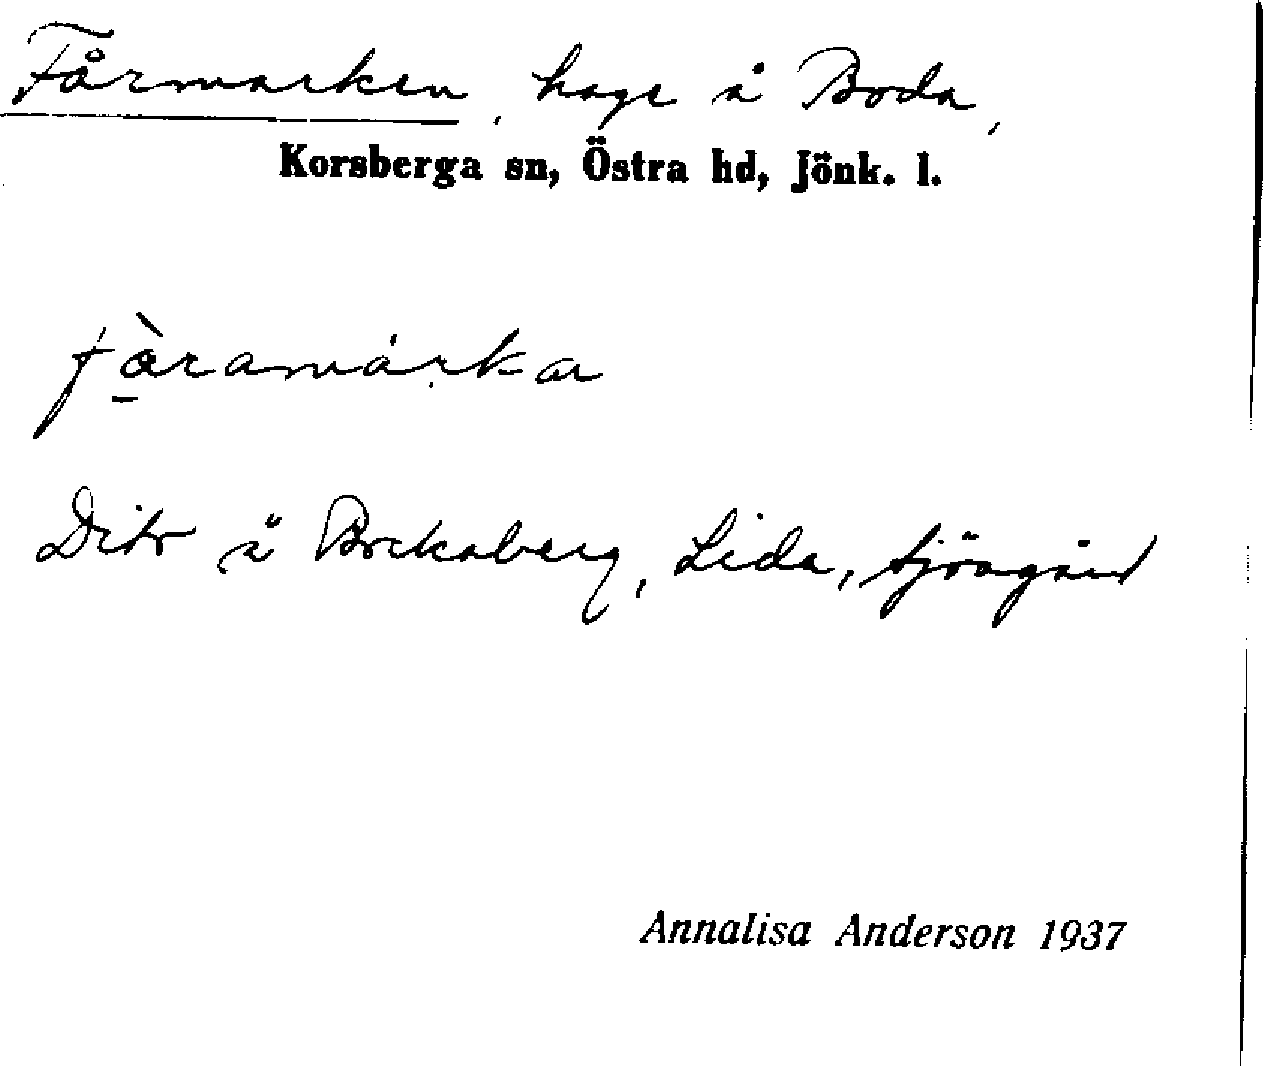 Fårmarken, hage å Boda,
Korsberga sn, Östra hd, Jönk. l.
fàramárka
Dito å Bockaberg, Lida, Sjöagård
Annalisa Anderson 1937